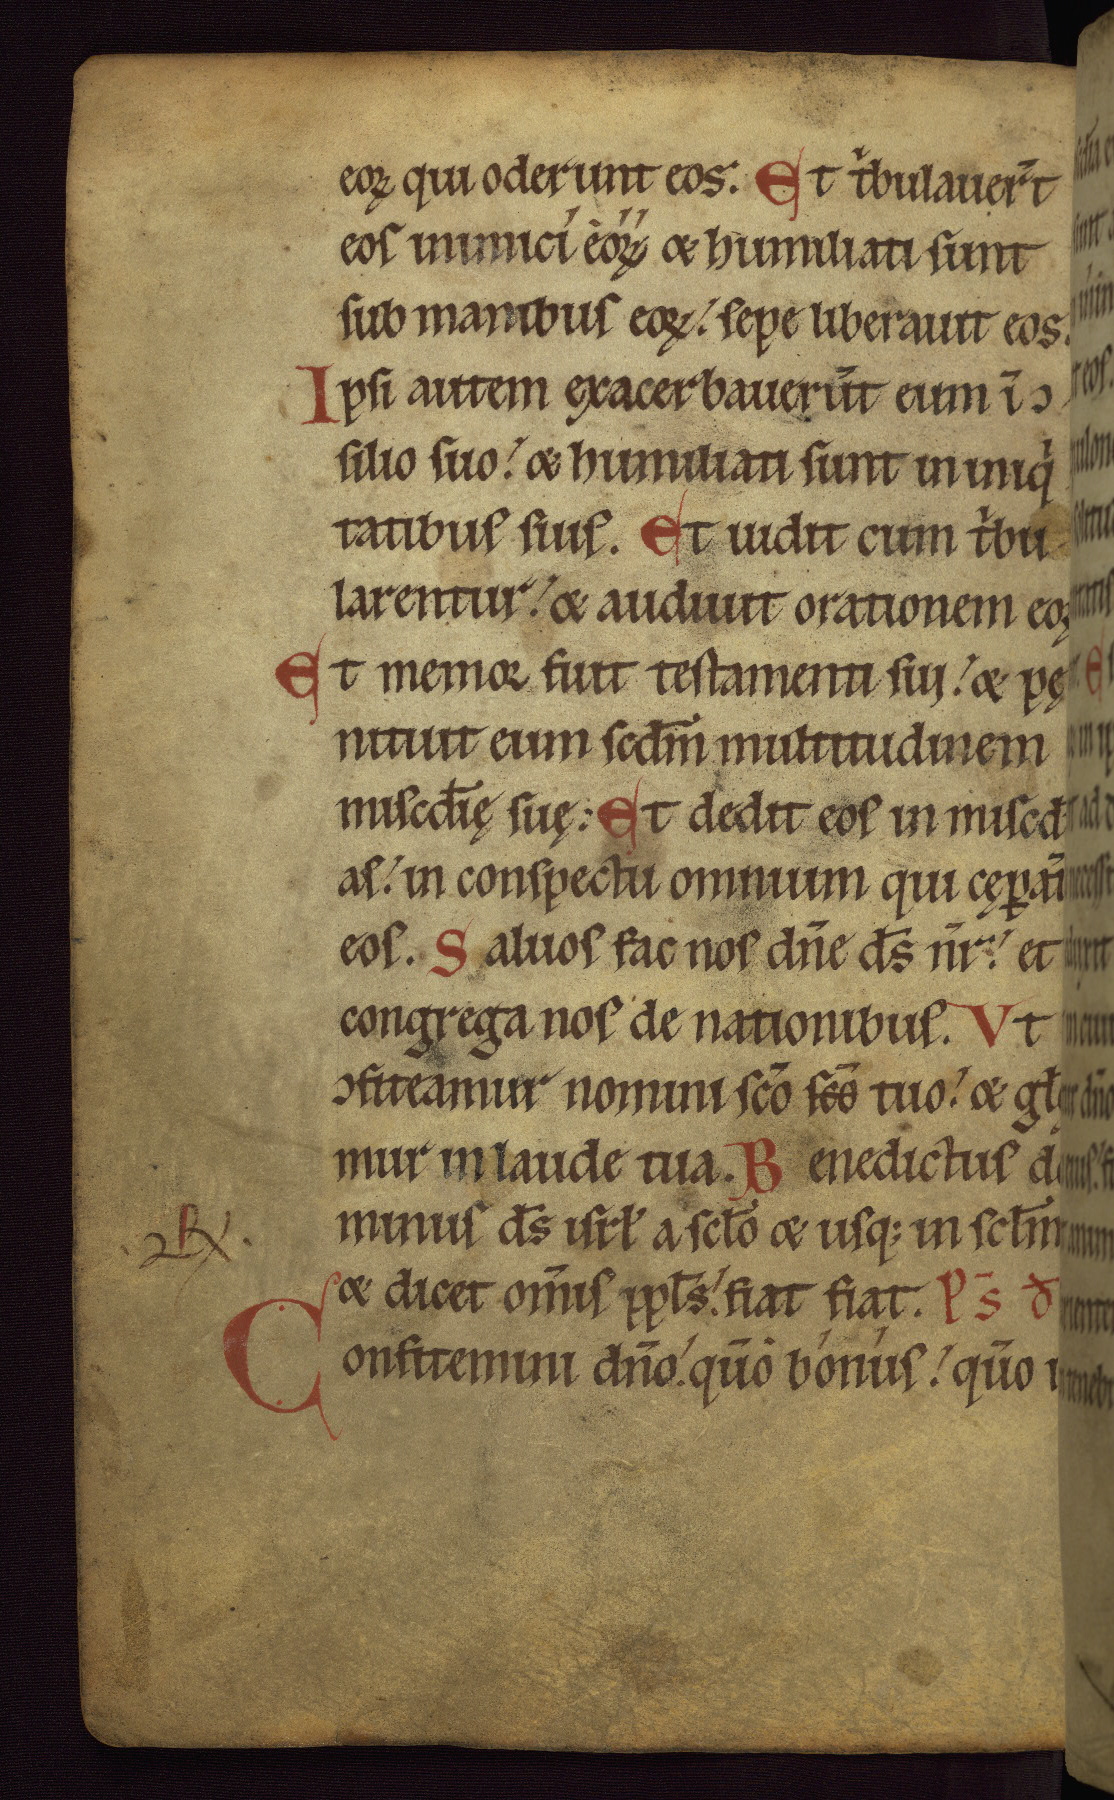 eoꝝ qui oderunt eos. Et tͥbulauer̄t
eos inimici eoꝝ ⁊ humiliati sunt
sub manibus eoꝝ. sepe liberauit eos.
Ipsi autem exacerbauerūt eum ī ↄ
silio suo. ⁊ humiliati sunt in iniqͥ
tatibus suis. Et uidit cum tͥbu
larentur. ⁊ audiuit orationem eoꝝ
Et memor fuit testamenti sui. ⁊ pę
nituit eum scdm̄ multitudinem
miscd̄ię suę. Et dedit eos in miscd̄
as. in conspectu omnium qui cęꝑāt
eos. Saluos fac nos dn̄e ds̄ nr̄. et
congrega nos de nationibus. Vt
ↄfiteamur nomini scō scō tuo. ⁊ gl̄
mur in laude tua. Benedictus do
minus ds̄ isrł a scło ⁊ usq; in scłm
⁊ dicet om̄is ppłs. fiat fiat. Ps̄ d
Confitemini dn̄o. qūo bonus. qūo i